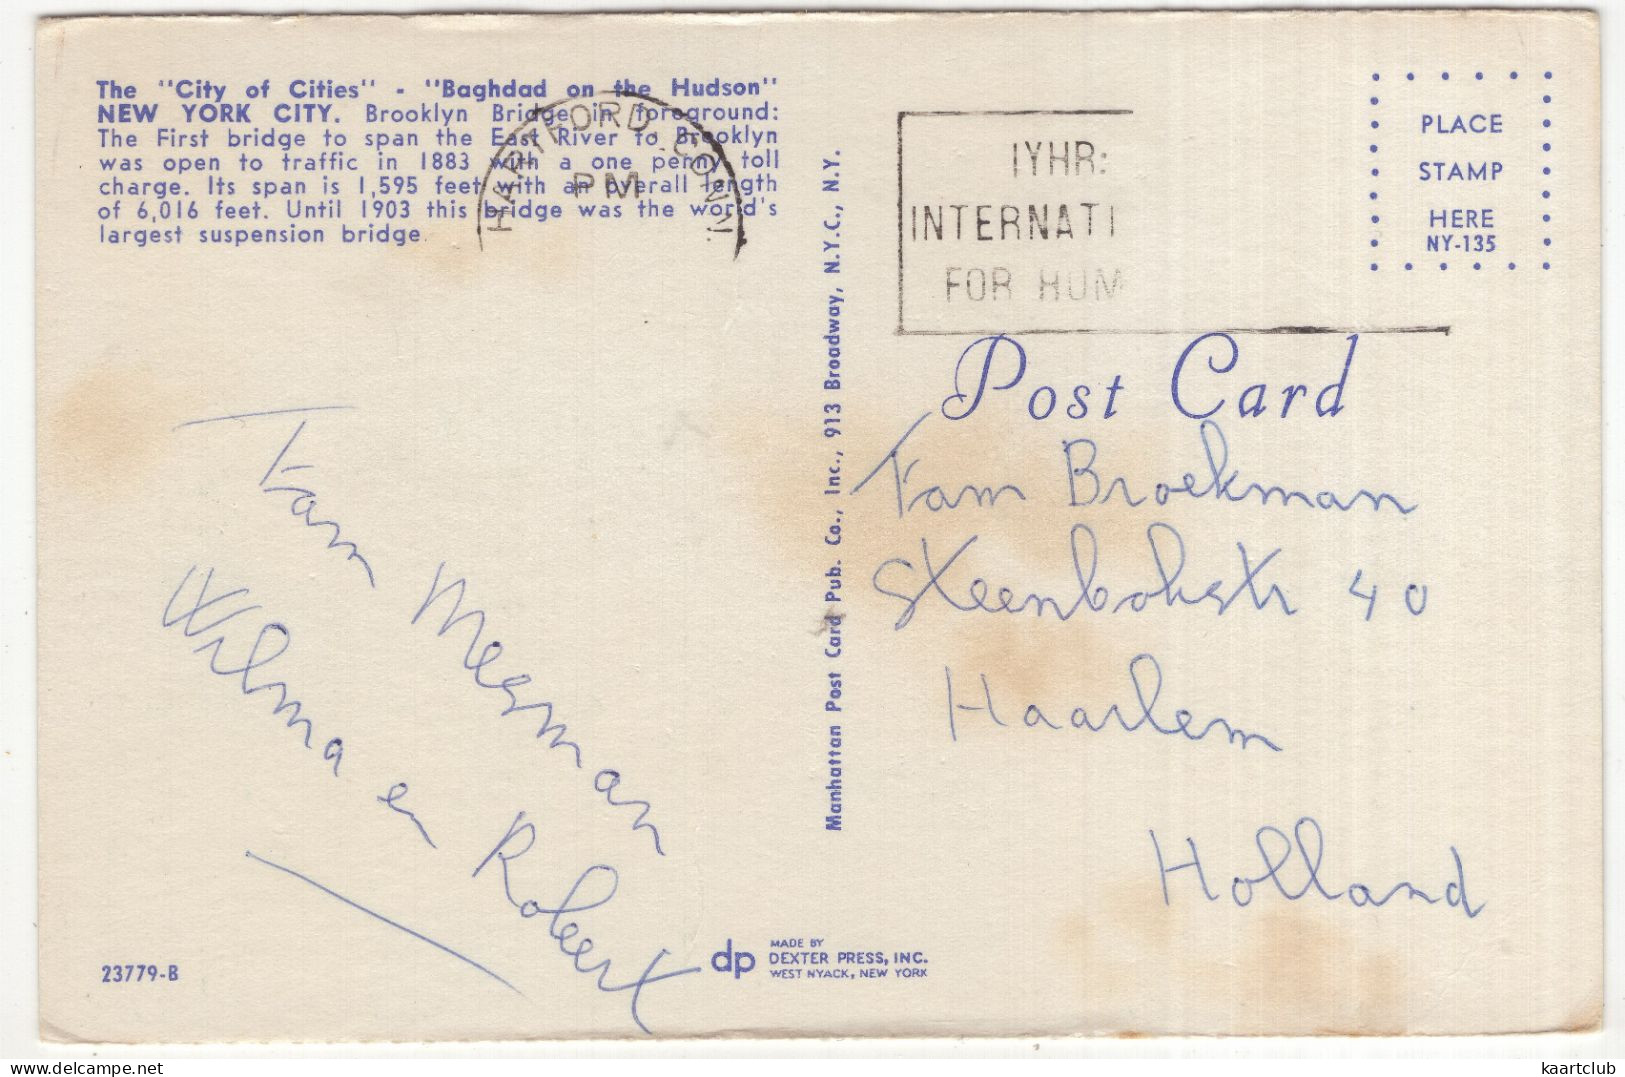 The "City of Cities" - "Baghdad on the Hudson"
NEW YORK CITY. Brooklyn Bridge in foreground:
The First bridge to span the East River to Brooklyn
was open to traffic in 1883 with a one penny toll
charge. Its span is 1,595 feet with an overall length
of 6,016 feet. Until 1903 this bridge was the world's
largest suspension bridge.
HARTFORD, CONN.
PM
IYHR:
INTERNATI
FOR HUM
PLACE
STAMP
HERE
NY-135
Post Card
Fam Broekman
Steenbokstr 40
Haarlem
Holland
Fam Mesman
Wilma en Robert
Manhattan Post Card Pub. Co., Inc., 913 Broadway, N.Y.C., N.Y.
23779-B
dp
MADE BY
DEXTER PRESS, INC.
WEST NYACK, NEW YORK
kaartclub